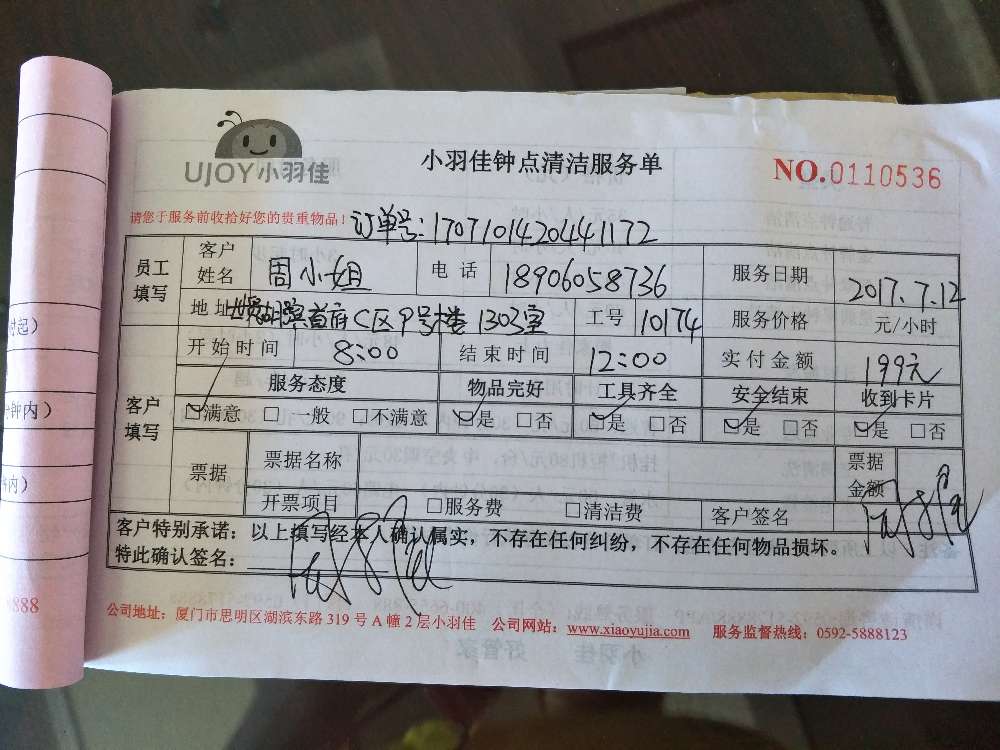 UJOY小羽佳
小羽佳钟点清洁服务单
NO.0110536
请您于服务前收拾好您的贵重物品！
订单号:1707101420441172
员工填写 客户姓名 周小姐 电话 18906058736 服务日期 2017.7.12
地址 首府C区9号楼1303室 工号 10174 服务价格 元/小时
客户填写 开始时间 8:00 结束时间 12:00 实付金额 199元
服务态度 物品完好 工具齐全 安全结束 收到卡片
☑满意 □一般 □不满意 ☑是 □否 ☑是 □否 ☑是 □否 ☑是 □否
票据 票据名称 票据金额
开票项目 □服务费 □清洁费 客户签名
客户特别承诺：以上填写经本人确认属实，不存在任何纠纷，不存在任何物品损坏。
特此确认签名：
公司地址：厦门市思明区湖滨东路319号A幢2层小羽佳 公司网站：www.xiaoyujia.com 服务监督热线：0592-5888123
时起）
钟内）
内）
8888